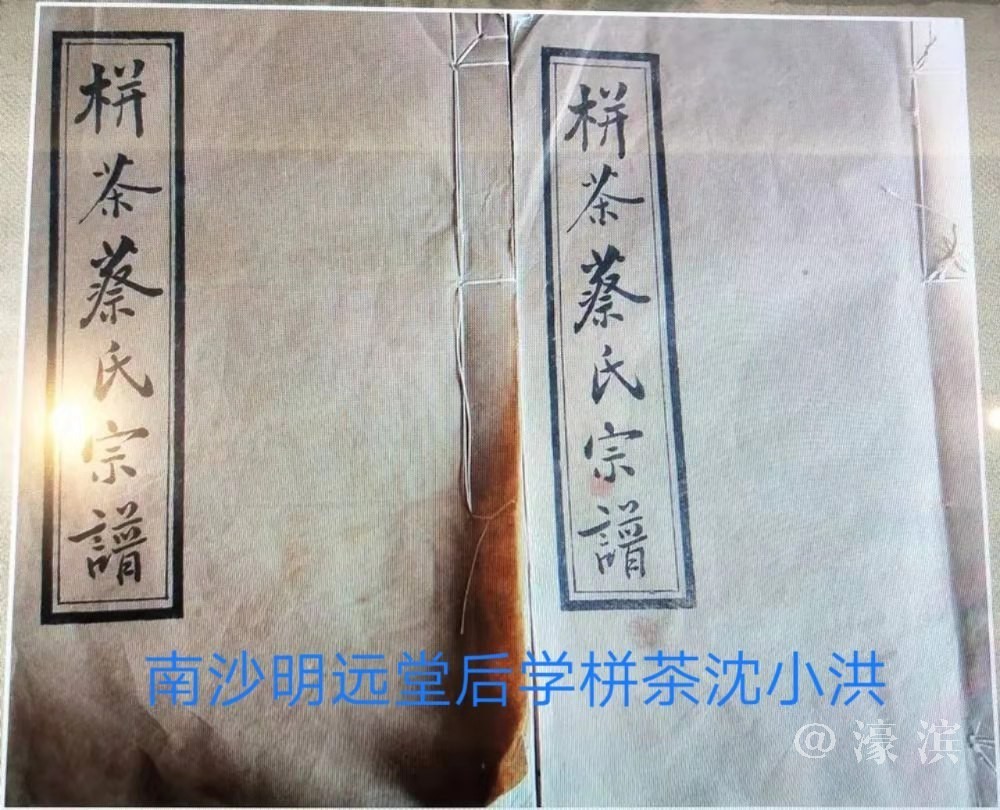 栟茶蔡氏宗譜
栟茶蔡氏宗譜
南沙明远堂后学栟茶沈小洪
@濠滨